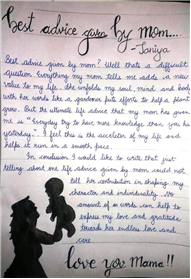 best advice given by mom....
-Taniya
Best advice given by mom? Well that's a difficult
question. Everything my mom tells me adds a new
value to my life. She unfolds my soul, mind, and body
with her words like a gardener puts efforts to help a plant
grow. But the ultimate life advice that my mom has given
me is "Everyday try to have more knowledge than you had
yesterday." I feel this is the accelerator of my life and
helps it run in a smooth pace.
In conclusion I would like to write that just
telling about one life advice given by mom could not
tell her contribution in shaping my
character and individuality. No
amount of words can help to
express my love and gratitude
towards her endless love and
care.
love you Mama!!